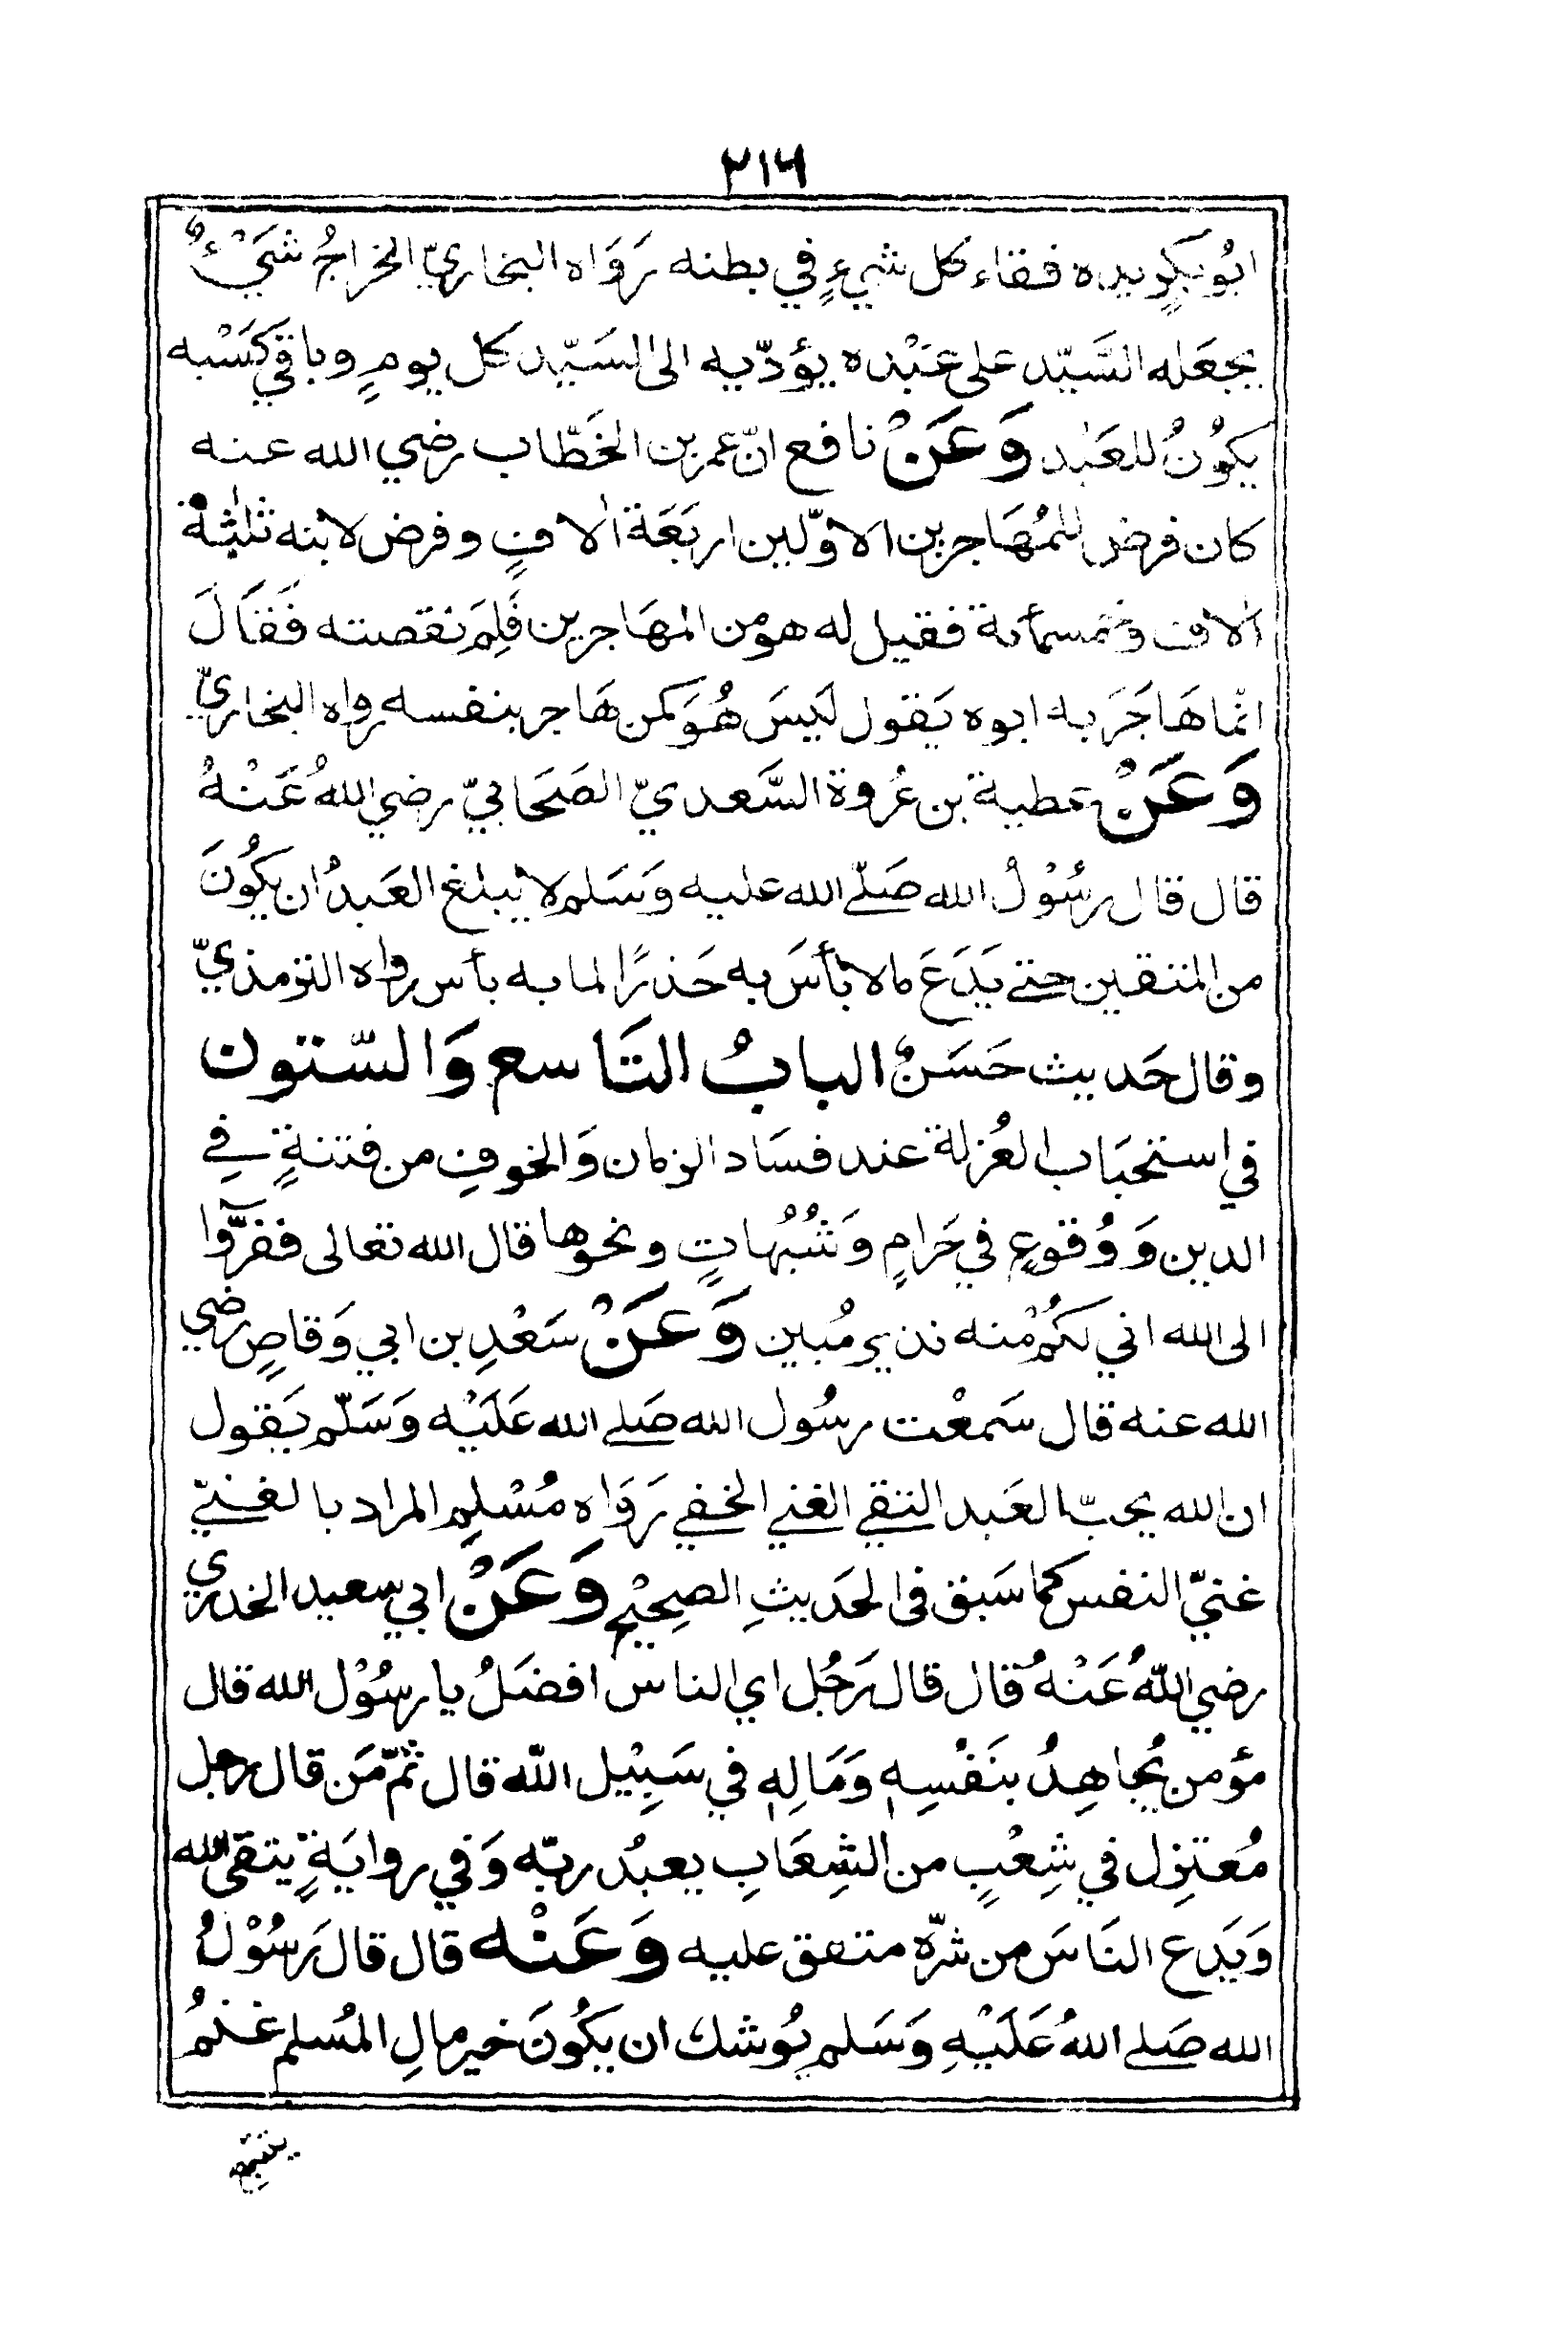 ٢١٦
ابُو بكرٍ يده فقاء كل شيءٍ في بطنه رَوَاه البخاريّ الخراجُ شَيْءٌ
يجعَله السَّيّد على عَبْده يؤدّيه الى السَيّد كل يومٍ وباقي كَسْبه
يكُوْنُ للعَبد وَعَنْ نافع انّ عمر بن الخَطّاب رضي الله عنه
كان فرض للمُهَاجرين الاوّلين اربَعَة الافٍ وفرض لابنه ثلثة
الاف وخمسمأئة فقيل له هو من المهَاجرين فَلِمَ نقصته فَقَالَ
انّما هَاجَرَ به ابوه يَقول لَيسَ هُوَ كمن هَاجر بنفسه رواه البخاريّ
وَعَنْ عطية بن عُروة السَّعديّ الصَحَابيّ رضي اللهُ عَنْهُ
قال قال رسُوْلُ الله صَلّے الله عليه وَسَلم لا يبلغ العَبدُ ان يكُونَ
من المتقين حتے يَدَعَ مالا بأسَ به حَذرًا لما به بأس رواه الترمذيّ
وقال حَديث حَسَنٌ البابُ التَاسع وَالسّتون
في استحبَاب العُزلة عند فسَاد الزمان وَالخوفِ من فتنةٍ في
الدين وَوُقوعٍ في حَرامٍ وَشُبُهاتٍ ونحوها قال الله تعالى ففرّوٓا
الى الله اني لكُمْ منه نذير مُبين وَعَنْ سَعْدِ بن ابي وَقاصٍ رضي
الله عنه قال سَمعْت رسُول الله صَلے الله عَلَيْه وَسَلّم يَقول
ان الله يحبّ العَبد التقي الغني الخفي رَوَاه مُسْلِم المراد بالغنيّ
غنيّ النفس كما سَبق فى الحَديثِ الصحِيْح وَعَنْ ابي سعيد الخدري
رضي اللّهُ عَنْهُ قال قال رَجُل اي الناس افضَلُ يا رسُوْل الله قال
مؤمن يُجاهِدُ بنَفْسِهٖ وَمَالِهٖ في سَبِيْل اللّه قال ثُمّ مَن قال رجل
مُعتزِل في شِعْبٍ من الشِعَابِ يعبدُ ربّه وَفي روايَةٍ يّتقى اللّه
وَيَدع النَاسَ من شرّه متفق عليه وَعَنْه قال قال رَسُوْلُ
الله صَلے اللهُ عَلَيْهِ وَسَلم يُوشك ان يكُونَ خير مالِ المُسلم غنمُ
يتبع